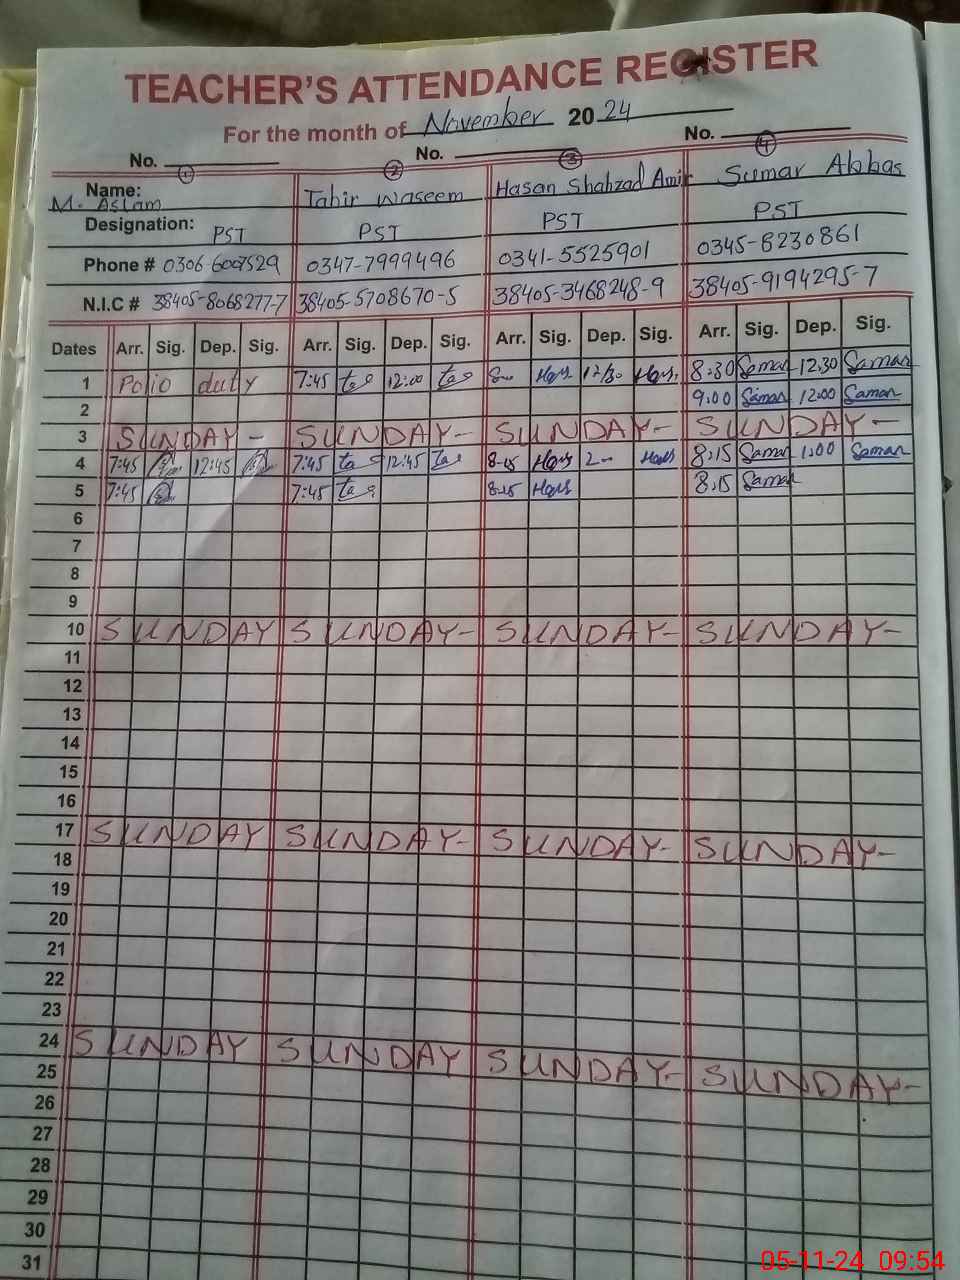 TEACHER'S ATTENDANCE REGISTER
For the month of November 2024
No. No. No.
1 2 3 4
Name: M. Aslam Tahir Waseem Hasan Shahzad Amir Sumar Abbas
Designation: PST PST PST PST
Phone # 0306-6007529 0347-7999496 0341-5525901 0345-8230861
N.I.C # 38405-8068277-7 38405-5708670-5 38405-3468248-9 38405-9194295-7
Dates Arr. Sig. Dep. Sig. Arr. Sig. Dep. Sig. Arr. Sig. Dep. Sig. Arr. Sig. Dep. Sig.
1 Polio duty 7:45 12:00 12/30 8:30 Saman 12.30 Saman
2 9.00 Saman 12.00 Saman
3 SUNDAY - SUNDAY- SUNDAY- SUNDAY-
4 7:45 12:45 7:45 12:45 8-15 8:15 Saman 1:00 Saman
5 7:45 7:45 8-15 8:15 Saman
6
7
8
9
10 SUNDAY SUNDAY- SUNDAY- SUNDAY-
11
12
13
14
15
16
17 SUNDAY SUNDAY- SUNDAY- SUNDAY-
18
19
20
21
22
23
24 SUNDAY SUNDAY SUNDAY- SUNDAY-
25
26
27
28
29
30
31
05-11-24 09:54